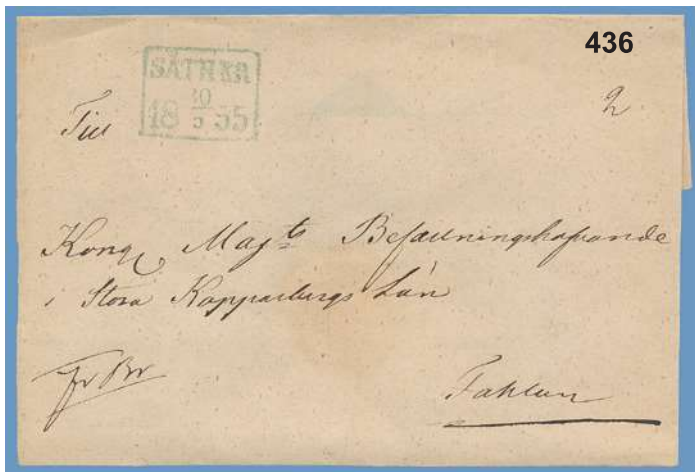 436
SÄTHER
30
18 5 55
2
Till
Kong Majts Befallningshafvande
i Stora Kopparbergs Län
Fr Br
Fahlun